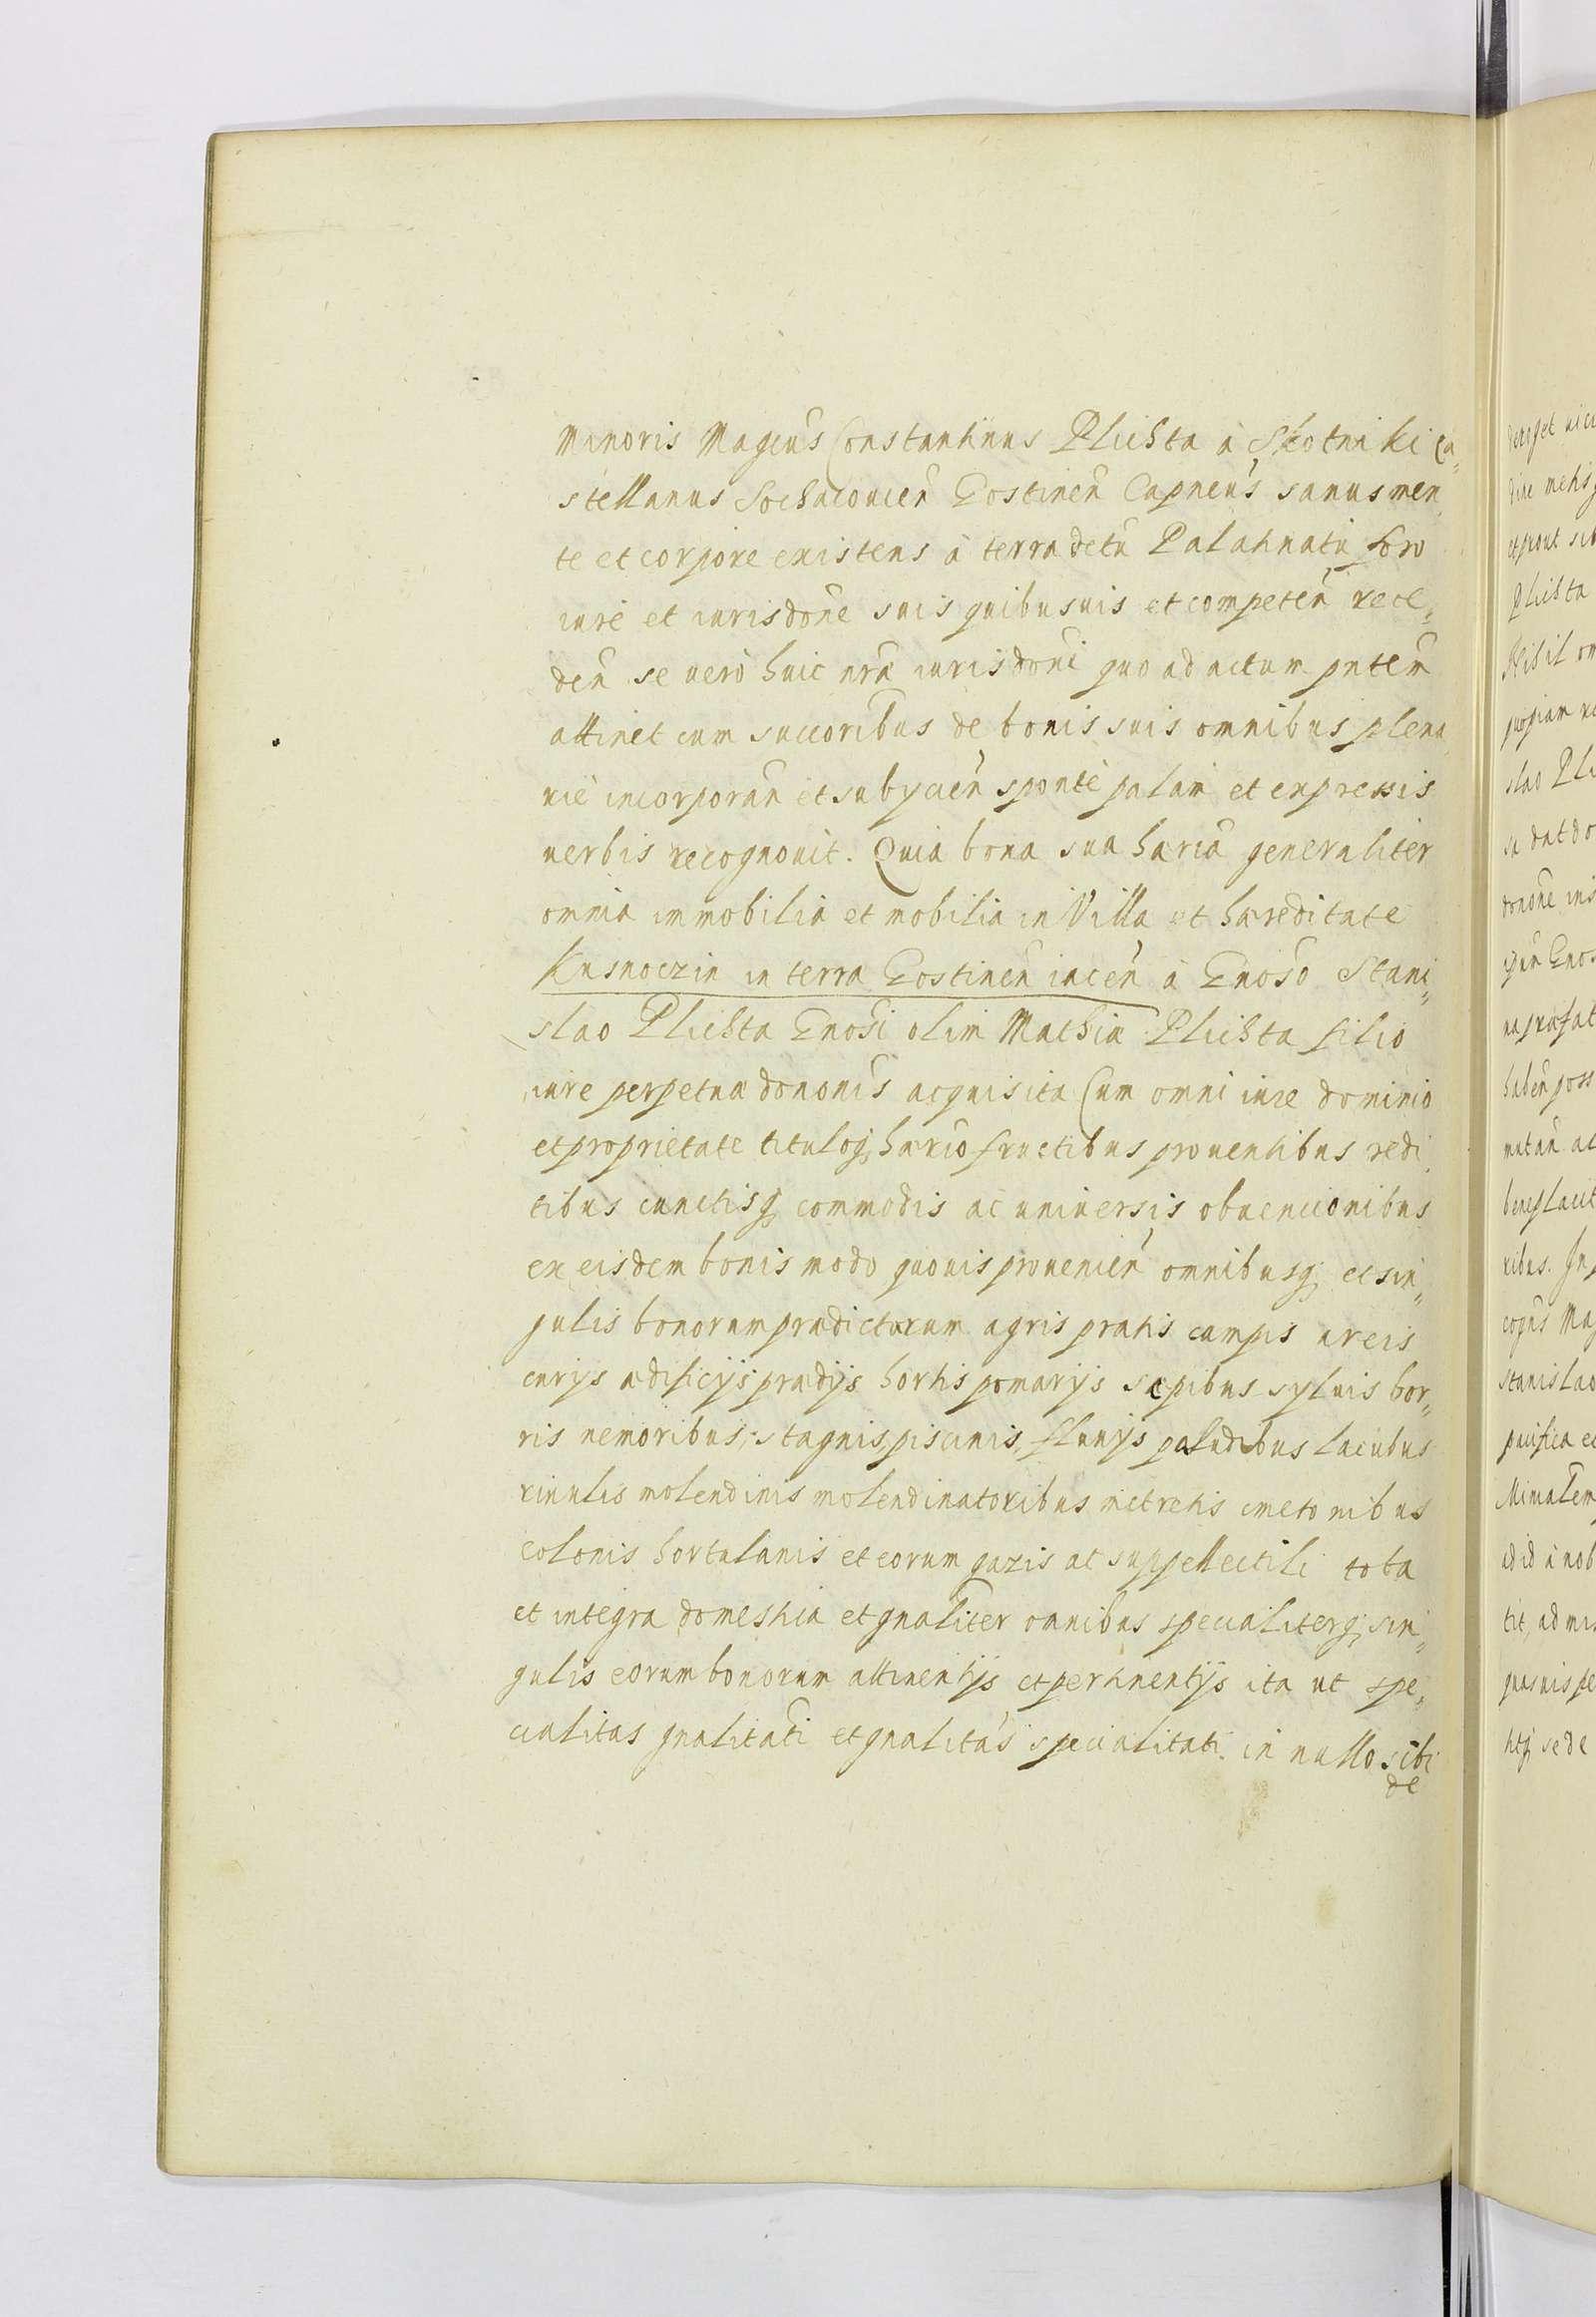 Minoris Magcus Constantinus Plichta à Skotniki Ca„
stellanus Sochacouien Gostinen Capneus sanus men„
te et corpore existens à terra dctu Palatinatu foro
iure et iurisdone suis quibusuis et competen rece„
den se verò huic nra iurisdoni quo ad actum pntem
attinet cum succoribus de bonis suis omnibus plena„
riè incorporan et subycien spontè palam et expressis
uerbis recognouit. Quia bona sua haria generaliter
omnia immobilia et mobilia in Villa et hæreditate
Kusnoczin in terra Gostinen iacen à Gnoso Stani„
slao Plichta Gnosi olim Mathiæ Plichta filio
iure perpetuæ dononis acquisita Cum omni iure dominio
et proprietate tituloq hærio fructibus prouentibus redi„
tibus cunctisq commodis ac uniuersis obuencionibus
ex eisdem bonis modo quouis prouenien omnibusq et sin„
gulis bonorum prædictorum agris pratis campis areis
curys ædificijs prædijs hortis pomarijs sepibus syluis bor„
ris nemoribus, stagnis piscinis, fluuijs paludibus lacubus
riuulis molendinis molendinatoribus metretis cmetonibus
colonis hortulanis et eorum gazis ac suppellectili tota
et integra domestica et gnaliter omnibus specialiterq sin„
gulis eorum bonorum attinentijs et pertinentijs ita ut spe„
cialitas gnalitati et gnalitas specialitati in nullo sibi
de